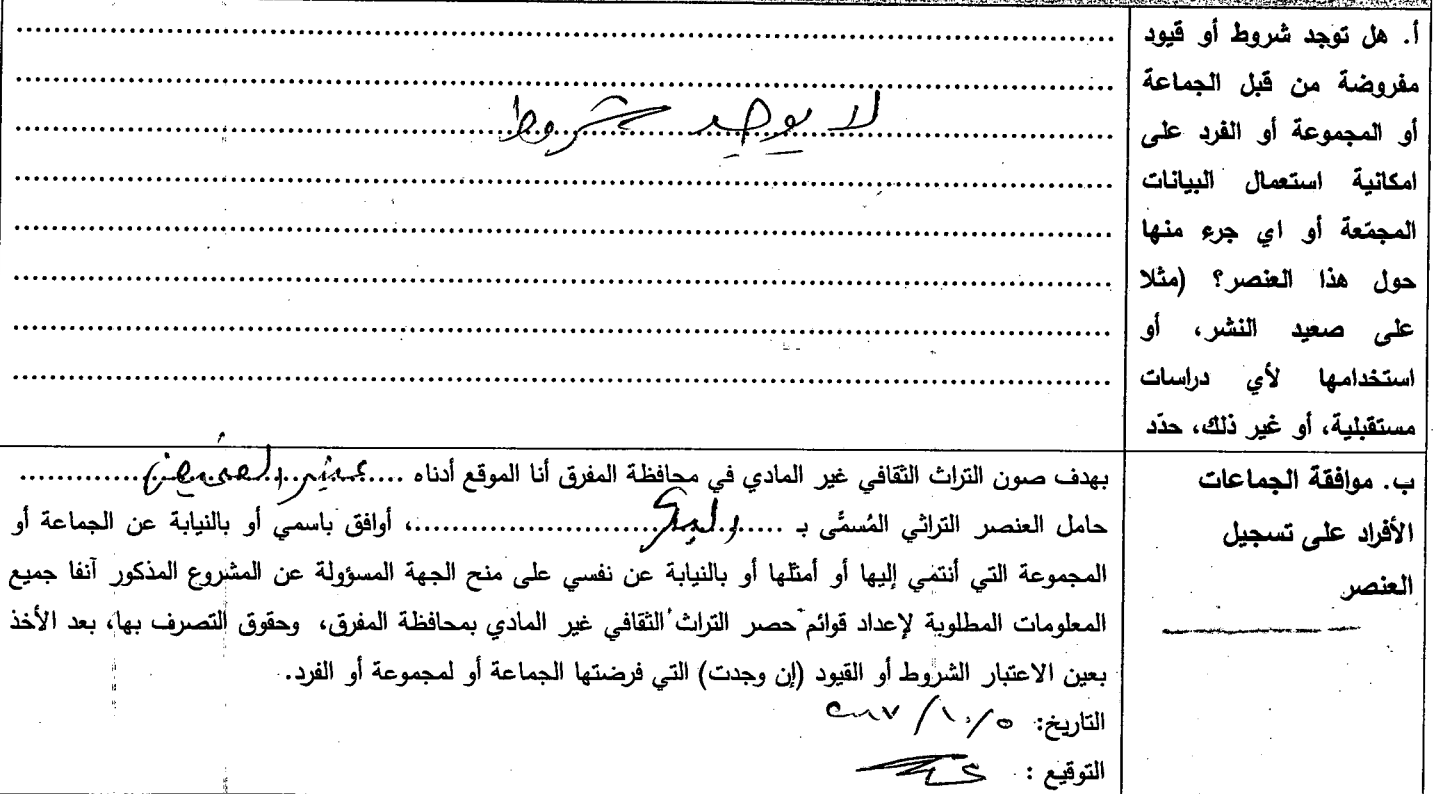 أ. هل توجد شروط أو قيود
مفروضة من قبل الجماعة
أو المجموعة أو الفرد على
امكانية استعمال البيانات
المجمّعة أو اي جرء منها
حول هذا العنصر؟ (مثلا
على صعيد النشر، أو
استخدامها لأي دراسات
مستقبلية، أو غير ذلك، حدّد
لا يوجد شروط
ب. موافقة الجماعات
الأفراد على تسجيل
العنصر
بهدف صون التراث الثقافي غير المادي في محافظة المفرق أنا الموقع أدناه ....
حامل العنصر التراثي المُسمَّى بـ ....، أوافق باسمي أو بالنيابة عن الجماعة أو
المجموعة التي أنتمي إليها أو أمثلها أو بالنيابة عن نفسي على منح الجهة المسؤولة عن المشروع المذكور آنفا جميع
المعلومات المطلوبة لإعداد قوائم حصر التراث الثقافي غير المادي بمحافظة المفرق، وحقوق التصرف بها، بعد الأخذ
بعين الاعتبار الشروط أو القيود (إن وجدت) التي فرضتها الجماعة أو لمجموعة أو الفرد.
التاريخ: ٥/١٠/٢٠١٧
التوقيع :